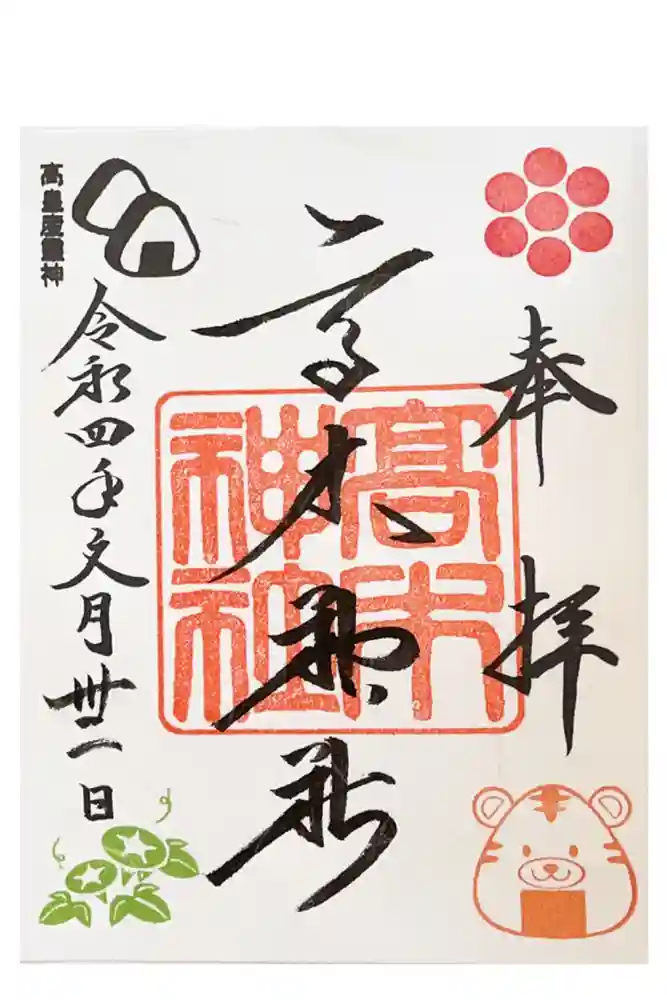 奉拝
高木神社
高木神社
令和四年文月卅一日
高皇産靈神